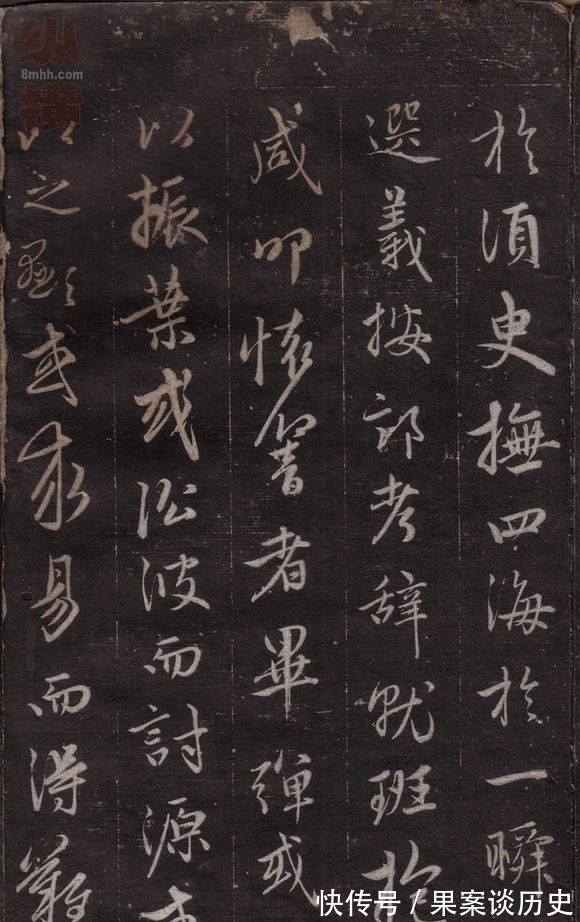 纵横
8mhh.com
於須臾撫四海於一瞬
選義按部考辭就班抱
咸叩懷響者畢彈或
以振葉或沿波而討源或
以之顯或求易而得難
快传号/果案谈历史